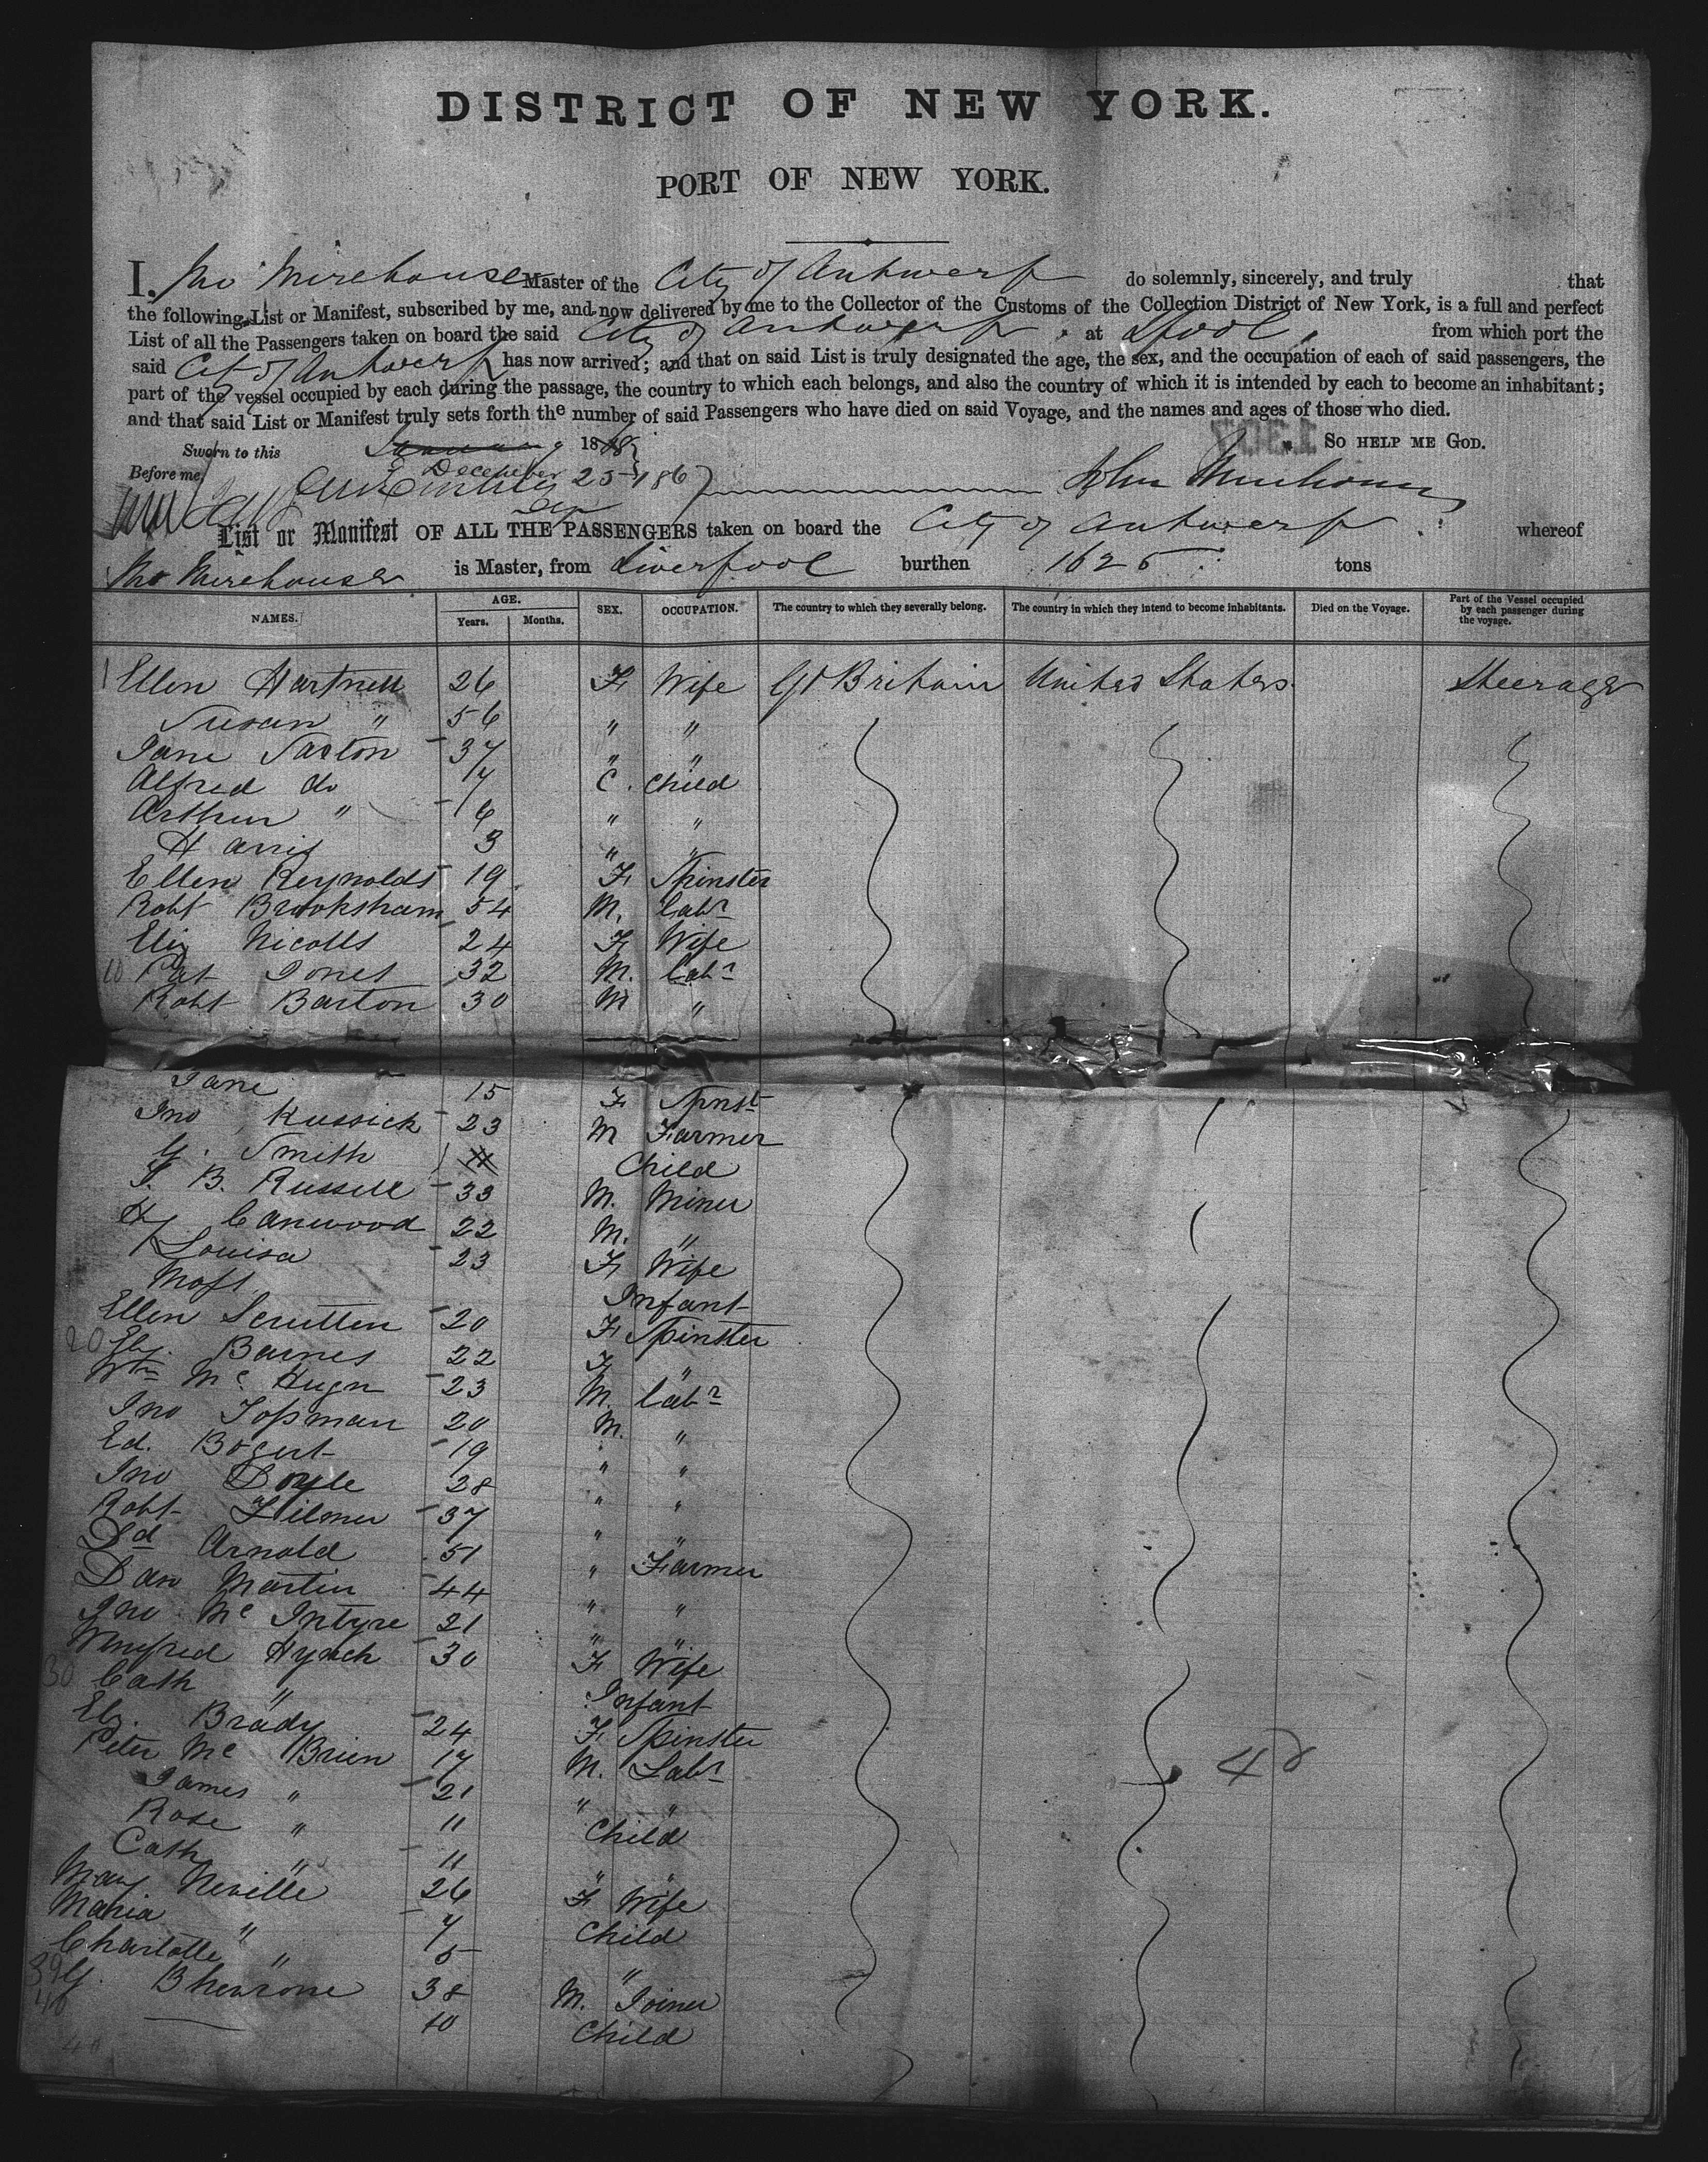 DISTRICT OF NEW YORK.
PORT OF NEW YORK.
I, Jno Mirehouse Master of the City of Antwerp do solemnly, sincerely, and truly that
the following List or Manifest, subscribed by me, and now delivered by me to the Collector of the Customs of the Collection District of New York, is a full and perfect
List of all the Passengers taken on board the said City of Antwerp at Lpool, from which port the
said City of Antwerp has now arrived; and that on said List is truly designated the age, the sex, and the occupation of each of said passengers, the
part of the vessel occupied by each during the passage, the country to which each belongs, and also the country of which it is intended by each to become an inhabitant;
and that said List or Manifest truly sets forth the number of said Passengers who have died on said Voyage, and the names and ages of those who died.
So HELP ME GOD.
Sworn to this January 1868
Before me December 25 1867 John Mirehouse
List or Manifest OF ALL THE PASSENGERS taken on board the City of Antwerp whereof
Jno Mirehouse is Master, from Liverpool burthen 1625 tons
NAMES. AGE. Years. Months. SEX. OCCUPATION. The country to which they severally belong. The country in which they intend to become inhabitants. Died on the Voyage. Part of the Vessel occupied by each passenger during the voyage.
1 Ellen Hartnell 26 F Wife Gt Britain United States Steerage
Susan " 56 " "
Jane Saxton 37 " "
Alfred do 7 C. Child
Arthur " 6 " "
Harris 3 " "
Ellen Reynolds 19 F Spinster
Robt Brooksham 54 M. Labr
Eliz Nicolls 24 F Wife
10 Pat Jones 32 M. Labr
Robt Barton 30 M "
Jane 15 F Spnst
Jno Kussick 23 M Farmer
G. Smith 11 Child
T. B. Russell 33 M. Miner
Hy Canwood 22 M. "
Louisa 23 F Wife
Infant
Ellen Scrutten 20 F Spinster
20 Eliz. Barnes 22 F "
Wm Mc Hugn 23 M. Labr
Jno Topman 20 M. "
Ed. Bogert 19 " "
Jno Doyle 28 " "
Robt Filmer 37 " "
Ed Arnold 51 " Farmer
Dan Martin 44 " "
Jno Mc Intyre 21 " "
Winefred Hynch 30 F Wife
30 Cath " Infant
Eliz. Brady 24 F Spinster
Peter Mc Brien 17 M. Labr
James " 21 " "
Rose " 11 Child
Cath " 11 " "
Mary Neville 26 F Wife
Maria " 7 Child
Charlotte " 5 "
39 G. 38 M. Joiner
40 10 Child
40